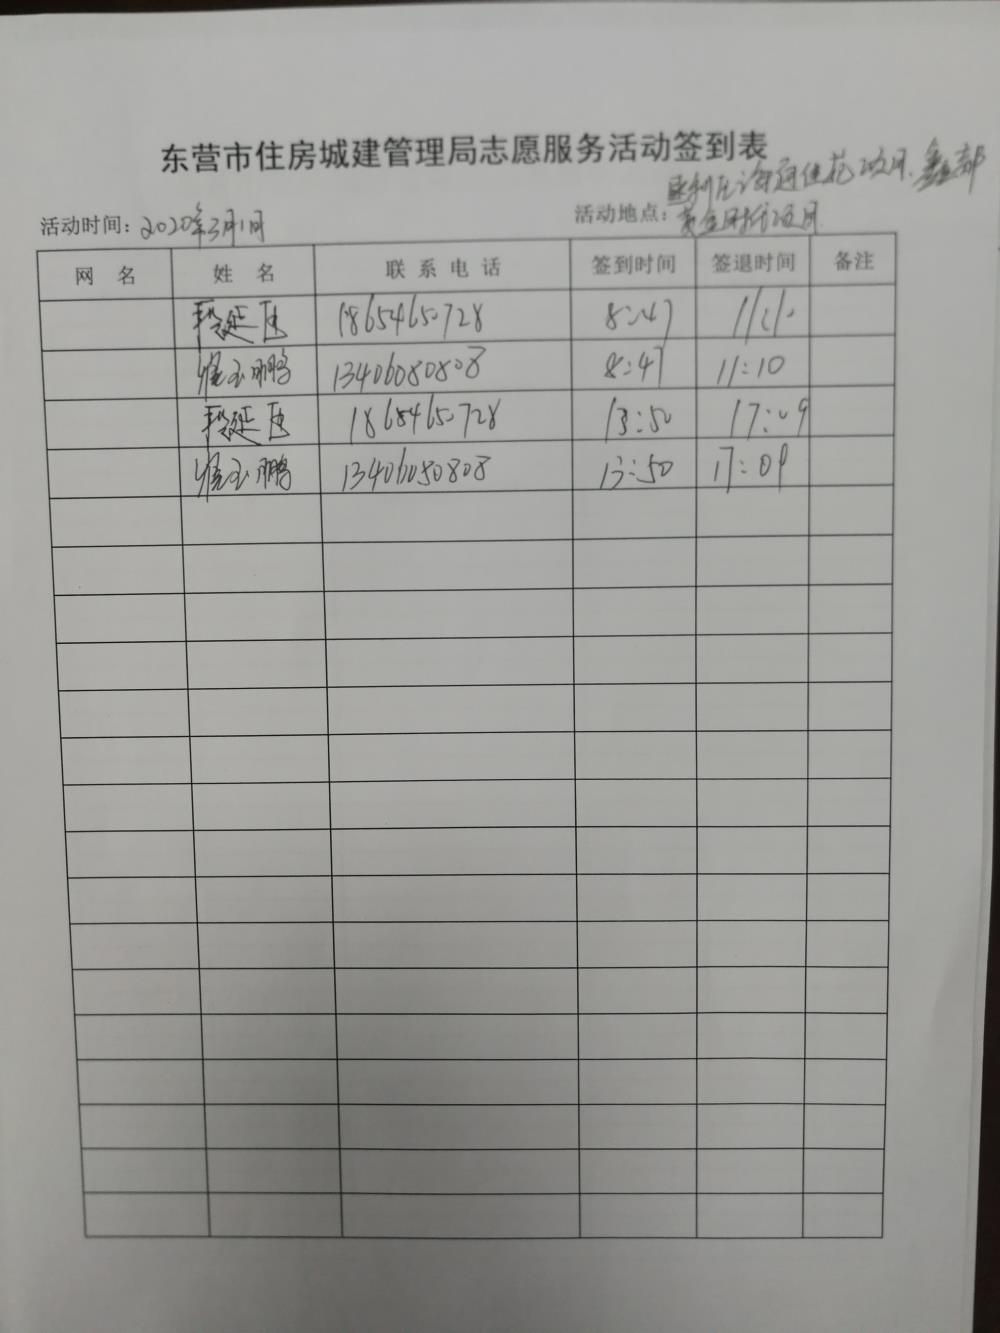 东营市住房城建管理局志愿服务活动签到表
活动时间：2020年3月1日
活动地点：
黄金时代项目
网 名 姓 名 联系电话 签到时间 签退时间 备注
段延 18654650728 8:47 11:10
玉鹏 13406080808 8:47 11:10
段延 18654650728 13:50 17:09
玉鹏 13406080808 13:50 17:09